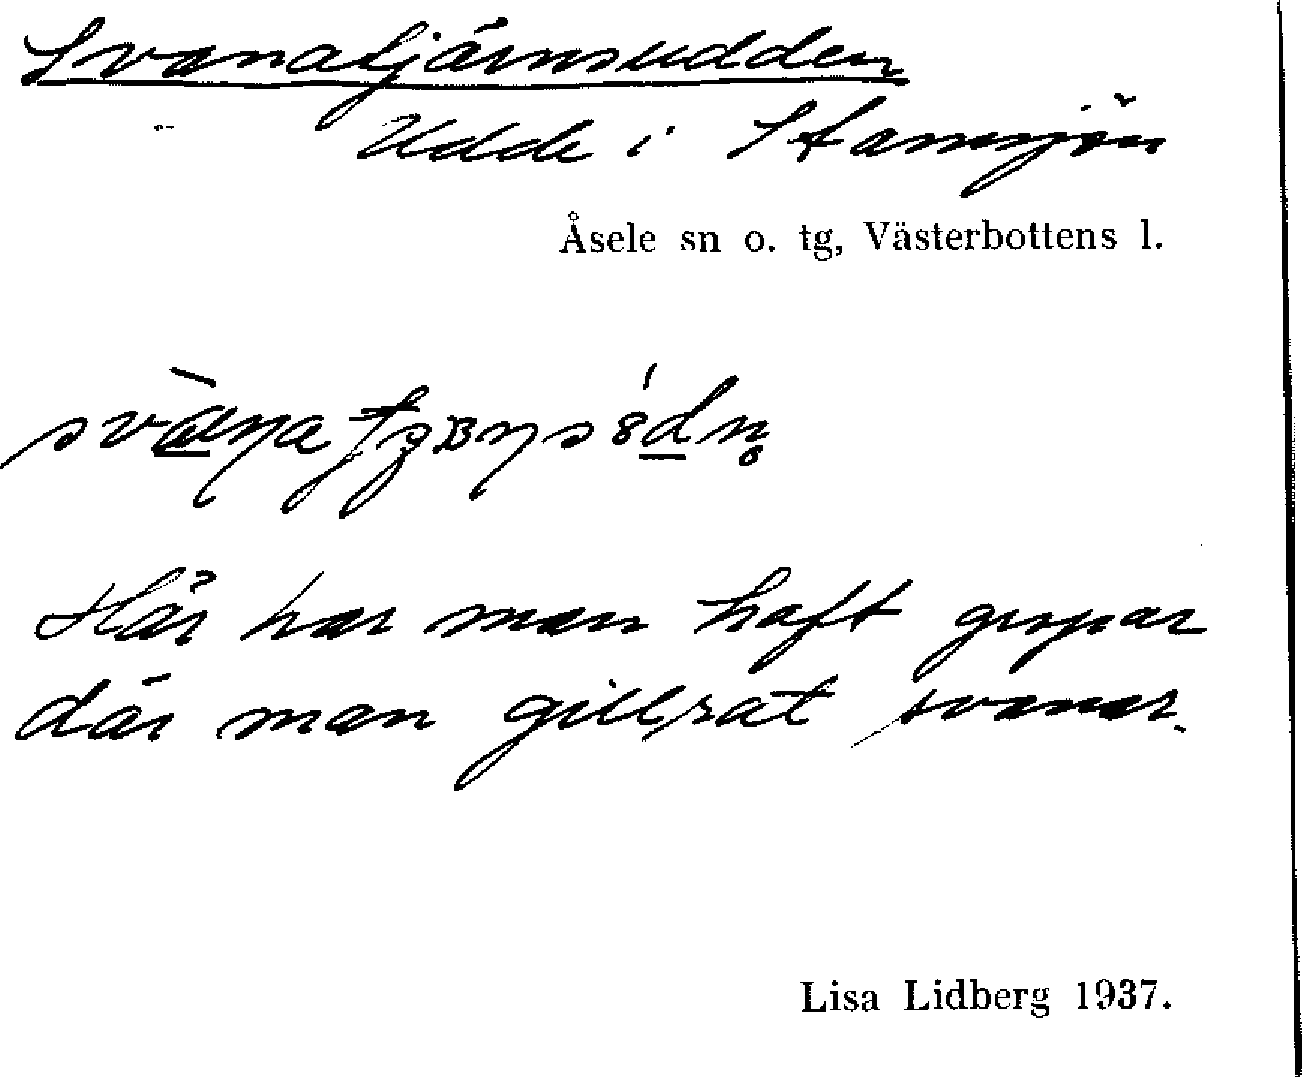 Svanatjärnsudden
Udde i Stamsjön
Åsele sn o. tg, Västerbottens l.
Här har man haft gropar
där man gillrat svanar.
Lisa Lidberg 1937.